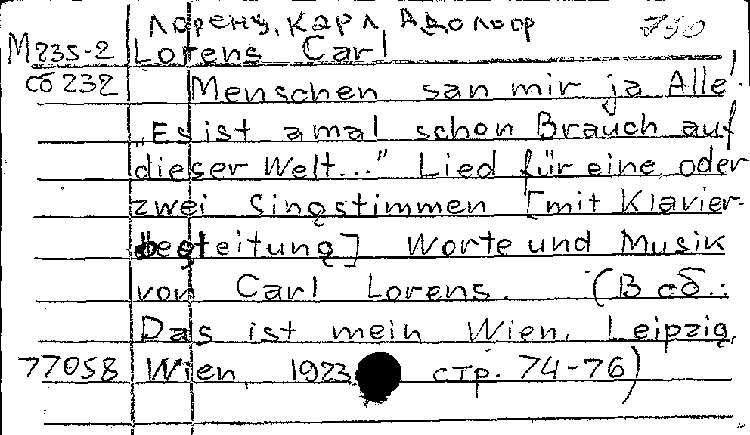 Лоренц, Карл, Адольф 750
М 235-2 Lorens Carl
сб 232 Menschen san mir ja Alle!
"Es ist amal schon Brauch auf
dieser Welt..." Lied für eine oder
zwei Singstimmen [mit Klavier-
begleitung] Worte und Musik
von Carl Lorens. (В сб.:
Das ist mein Wien. Leipzig,
77058 Wien, 1923 стр. 74-76)